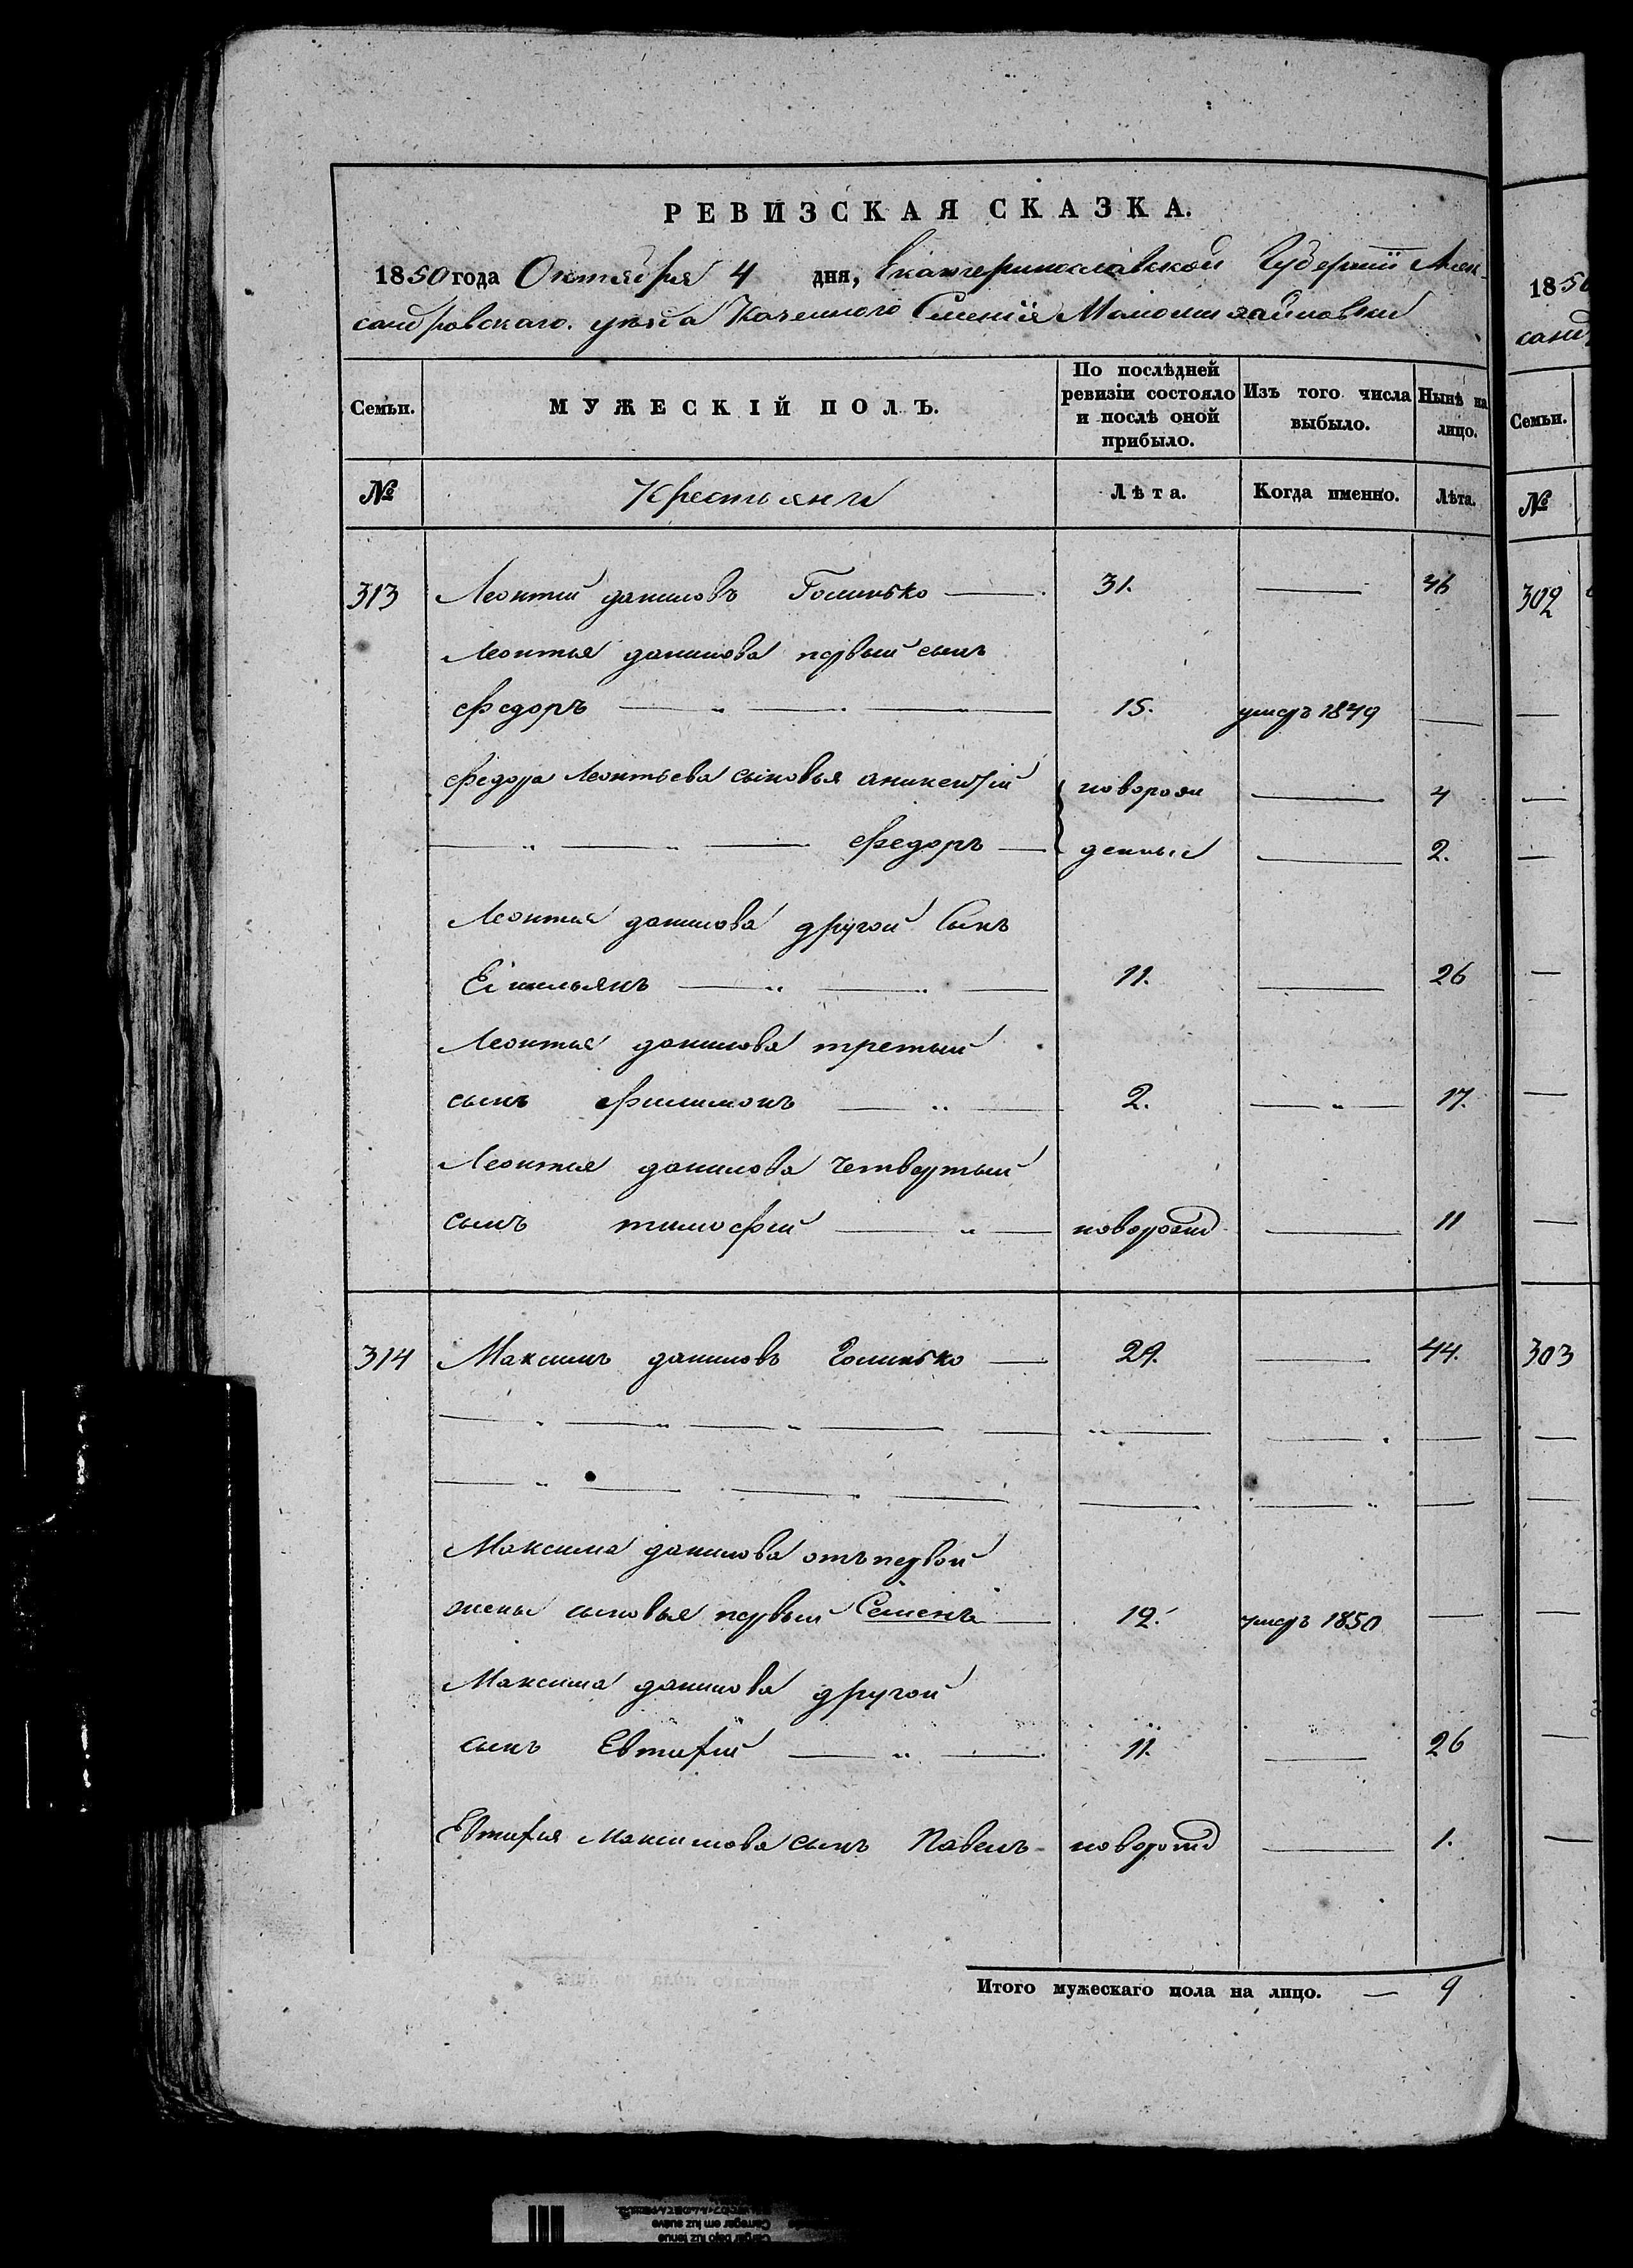 РЕВИЗСКАЯ СКАЗКА.
1850 года Октября 4 дня, Екатеринославской Губернїи Алек-
сандровскаго. уѣзда Казенного Селенїя Маломихайловки
Семьи. МУЖЕСКІЙ ПОЛЪ. По послѣдней ревизіи состояло и послѣ оной прибыло. Изъ того числа выбыло. Нынѣ на лицо.
№ Крестьяни Лѣта. Когда именно. Лѣта.
313 Леонтий данилов Голинько 31. 46
Леонтья данилова первый сынъ
Федоръ 15. умеръ 1849
Федора Леонтьева сыновья аникентїй новорож 4
Федоръ денные 2.
Леонтья данилова другой Сынъ
Емильянъ 11. 26
Леонтья данилова третьий
сынъ Филимонъ 2. 17.
Леонтья данилова Четвертый
сынъ тимофей новорожд 11
314 Максимъ данилов Голинько 29. 44.
Максима данилова отъ первой
жены сыновья первый Семенъ 12. умеръ 1850
Максима данилова другой
сынъ Евтифий 11. 26
Евтифия Максимова сынъ Павелъ новорожд 1.
Итого мужескаго пола на лицо. — 9
1850
санд
Семьи.
№
302
303